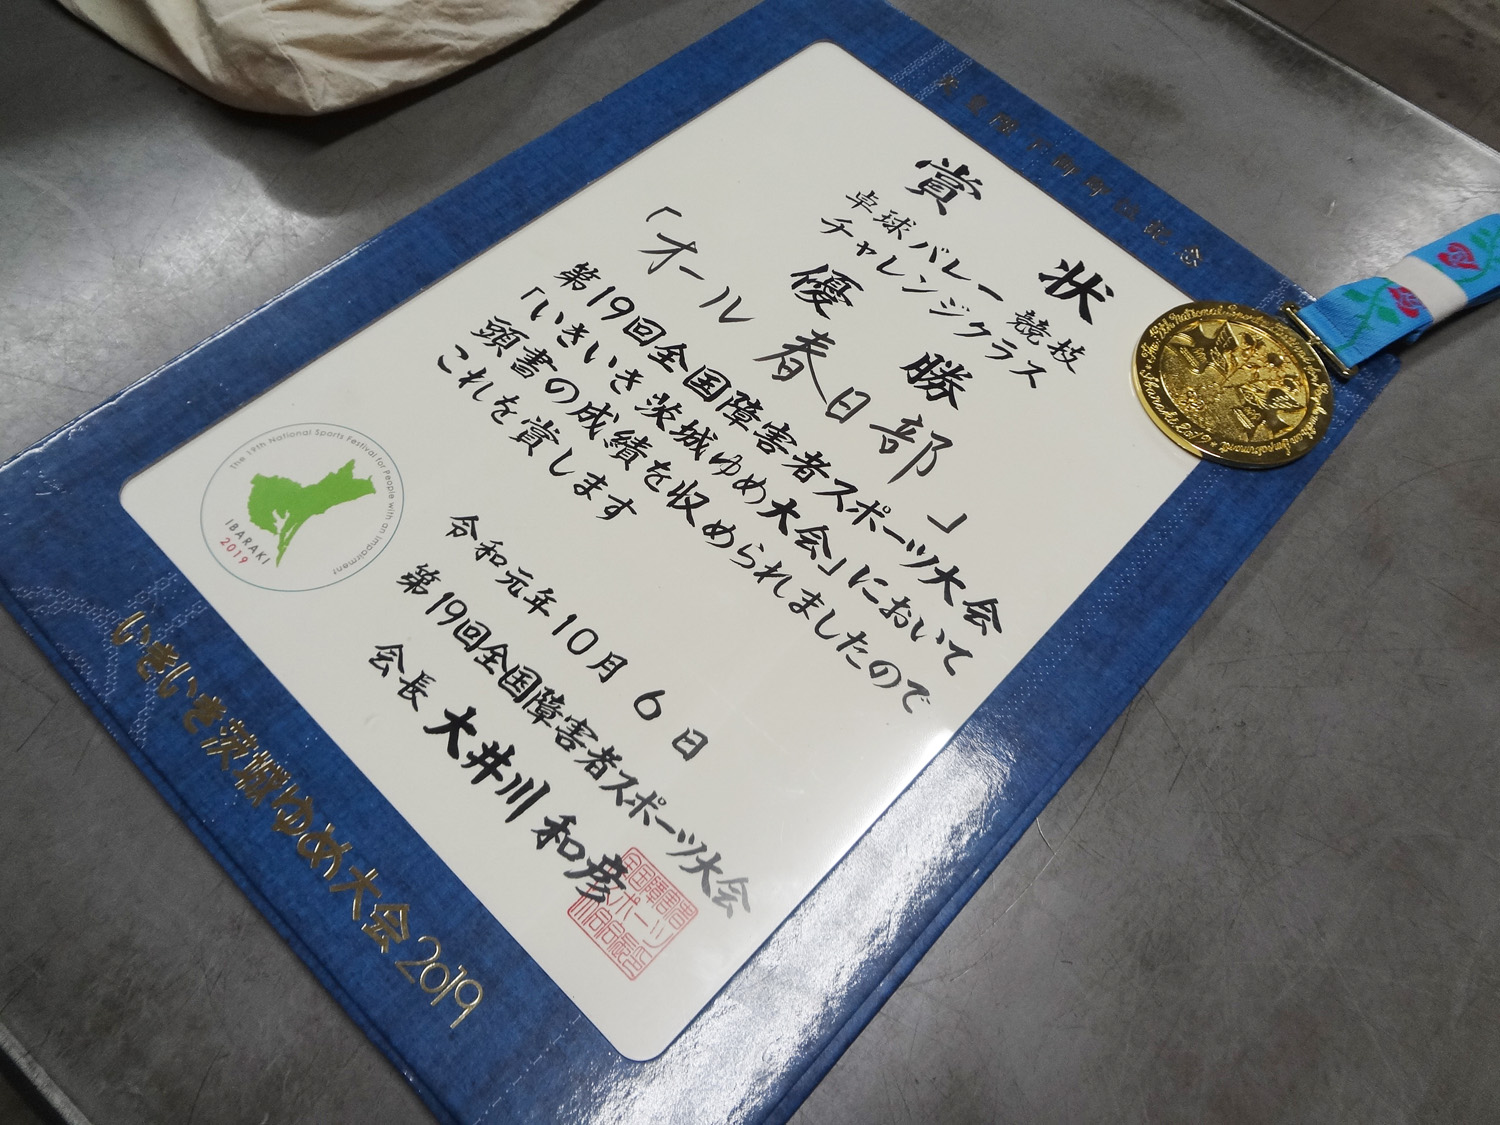 賞状
卓球バレー競技
チャレンジクラス
優勝
「オール春日部」
第19回全国障害者スポーツ大会
「いきいき茨城ゆめ大会」において
頭書の成績を収められましたので
これを賞します
令和元年10月6日
第19回全国障害者スポーツ大会
会長 大井川和彦
The 19th National Sports Festival for People with an Impairment
IBARAKI
2019
いきいき茨城ゆめ大会2019